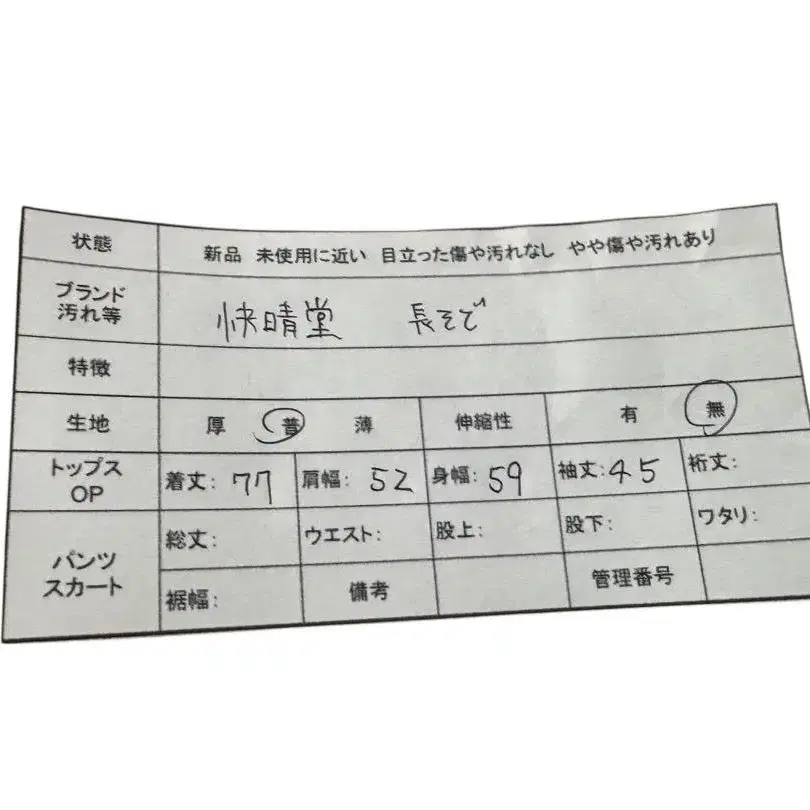 状態 新品 未使用に近い 目立った傷や汚れなし やや傷や汚れあり
ブランド
汚れ等 快晴堂 長そで
特徴
生地 厚 普 薄 伸縮性 有 無
トップス
OP 着丈: 77 肩幅: 52 身幅: 59 袖丈: 45 裄丈:
パンツ
スカート 総丈: ウエスト: 股上: 股下: ワタリ:
裾幅: 備考 管理番号